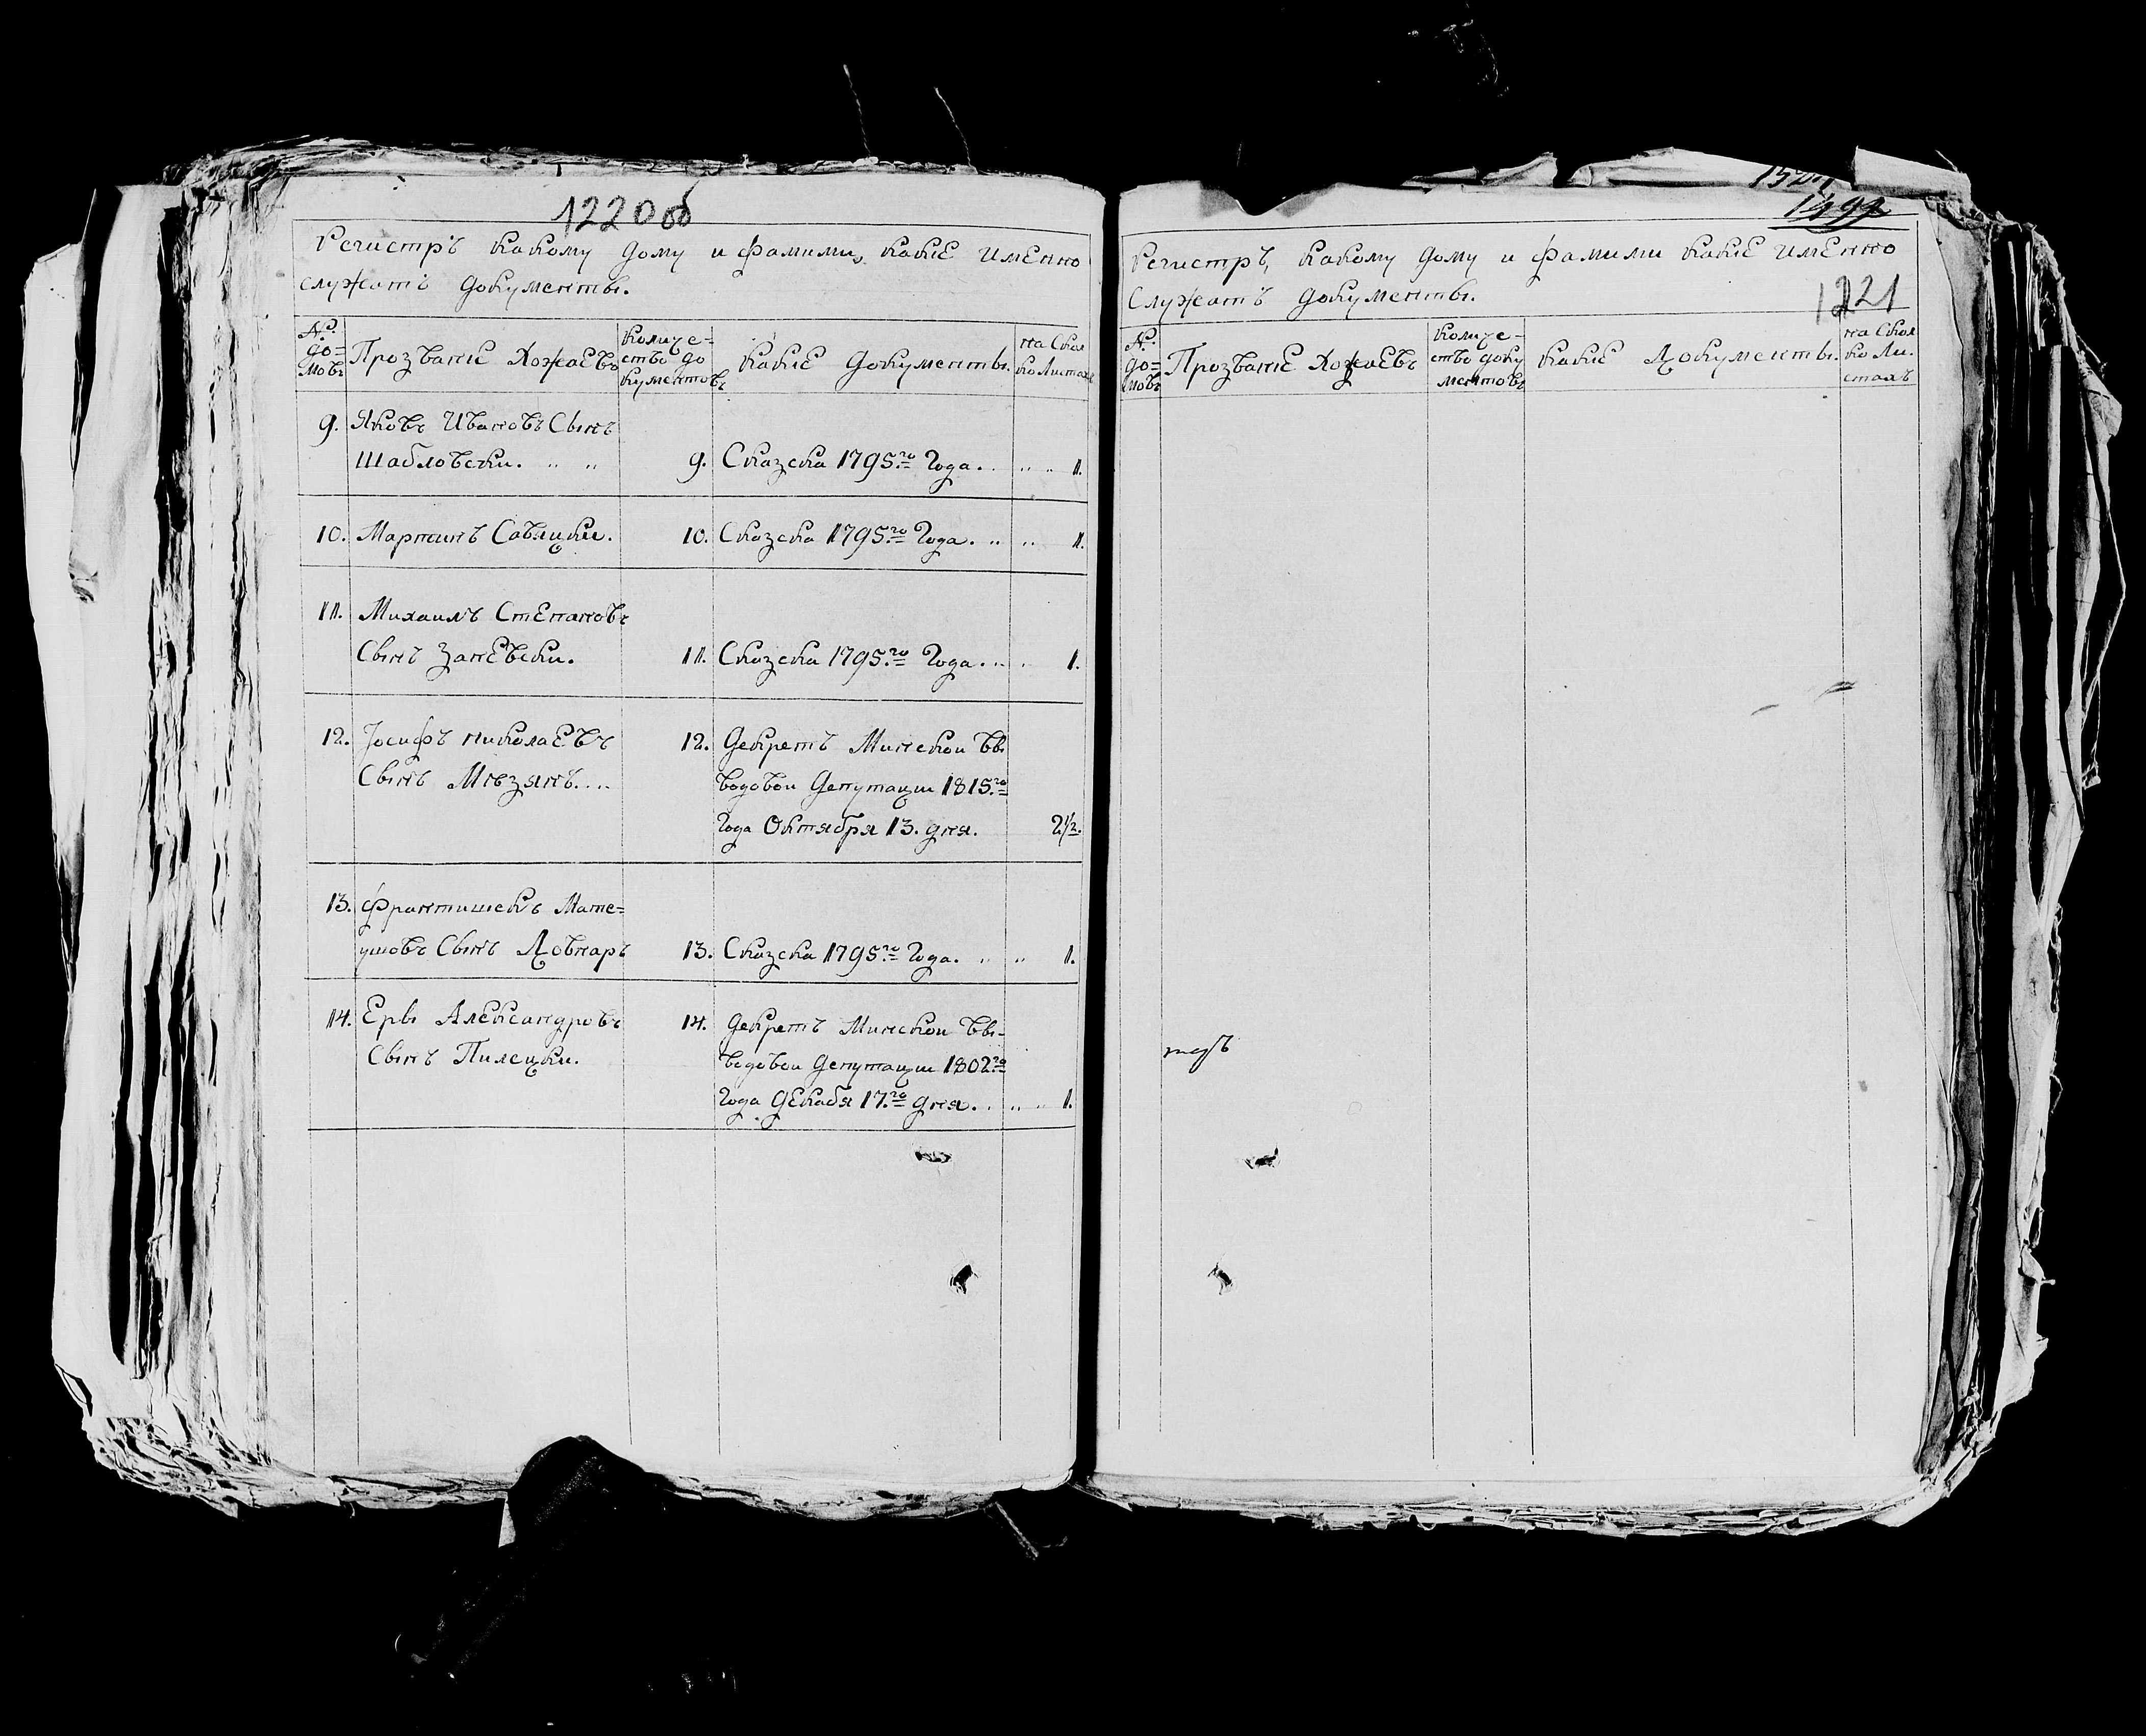 1220об
Регистръ какому дому и фамилии, какіе именно
служатъ документы.
№.
до=
мовъ
Прозваніе Хозяевъ
Количе=
ство до
кументовъ
какіе документы.
на Скол
ко Листахъ
9. Яковъ Ивановъ Сынъ
Шабловски. 9. Сказска 1795.го Года. 1.
10. Мартинъ Савицки. 10. Сказска 1795.го Года. 1.
11. Михаилъ Степановъ
Сынъ Заневски. 11. Сказска 1795.го Года. 1.
12. Іосифъ николаевъ 12. декретъ Минской Вы
Сынъ
водовои депутации 1815.го
Года Октября 13. дня. 2½.
13. франтишекъ Мате=
ушовъ Сынъ Довнаръ 13. Сказска 1795.го Года. 1.
14. Еры Александровъ 14. декретъ Минской Вы-
Сынъ Пилецки. водовои депутации 1802.го
Года декабя 17.го дня. 1.
1221
Регистръ, какому дому и фамилии какіе именно
Служатъ документы.
№.
до=
мовъ
Прозваніе Хозяевъ
Количе-
ство доку
ментовъ
какіе Документы.
на Скол
ко Ли.
стахъ